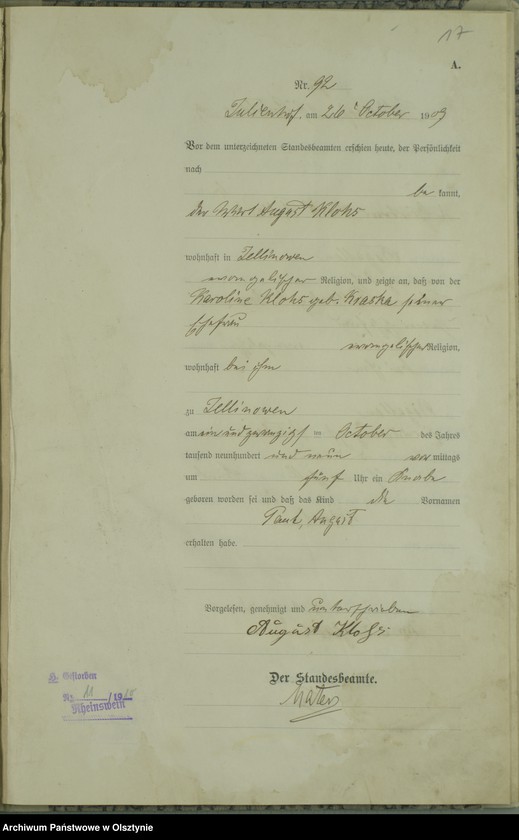 17
A.
Nr. 92
Julienhof, am 26 October 1909
Vor dem unterzeichneten Standesbeamten erschien heute, der Persönlichkeit
nach
be kannt,
der Wirt August Klohs
wohnhaft in Zellinowen
evangelischer Religion, und zeigte an, daß von der
Karoline Klohs geb. Kraska seiner
Ehefrau
evangelischer Religion,
wohnhaft bei ihm
zu Zellinowen
am ein und zwanzigst en October des Jahres
tausend neunhundert und neun vor mittags
um fünf Uhr ein Knabe
geboren worden sei und daß das Kind die Vornamen
Paul, August
erhalten habe.
Vorgelesen, genehmigt und unterschrieben
August Klohs
Der Standesbeamte.
Gestorben
Nr. 11 / 19
Rheinswein
Archiwum Państwowe w Olsztynie